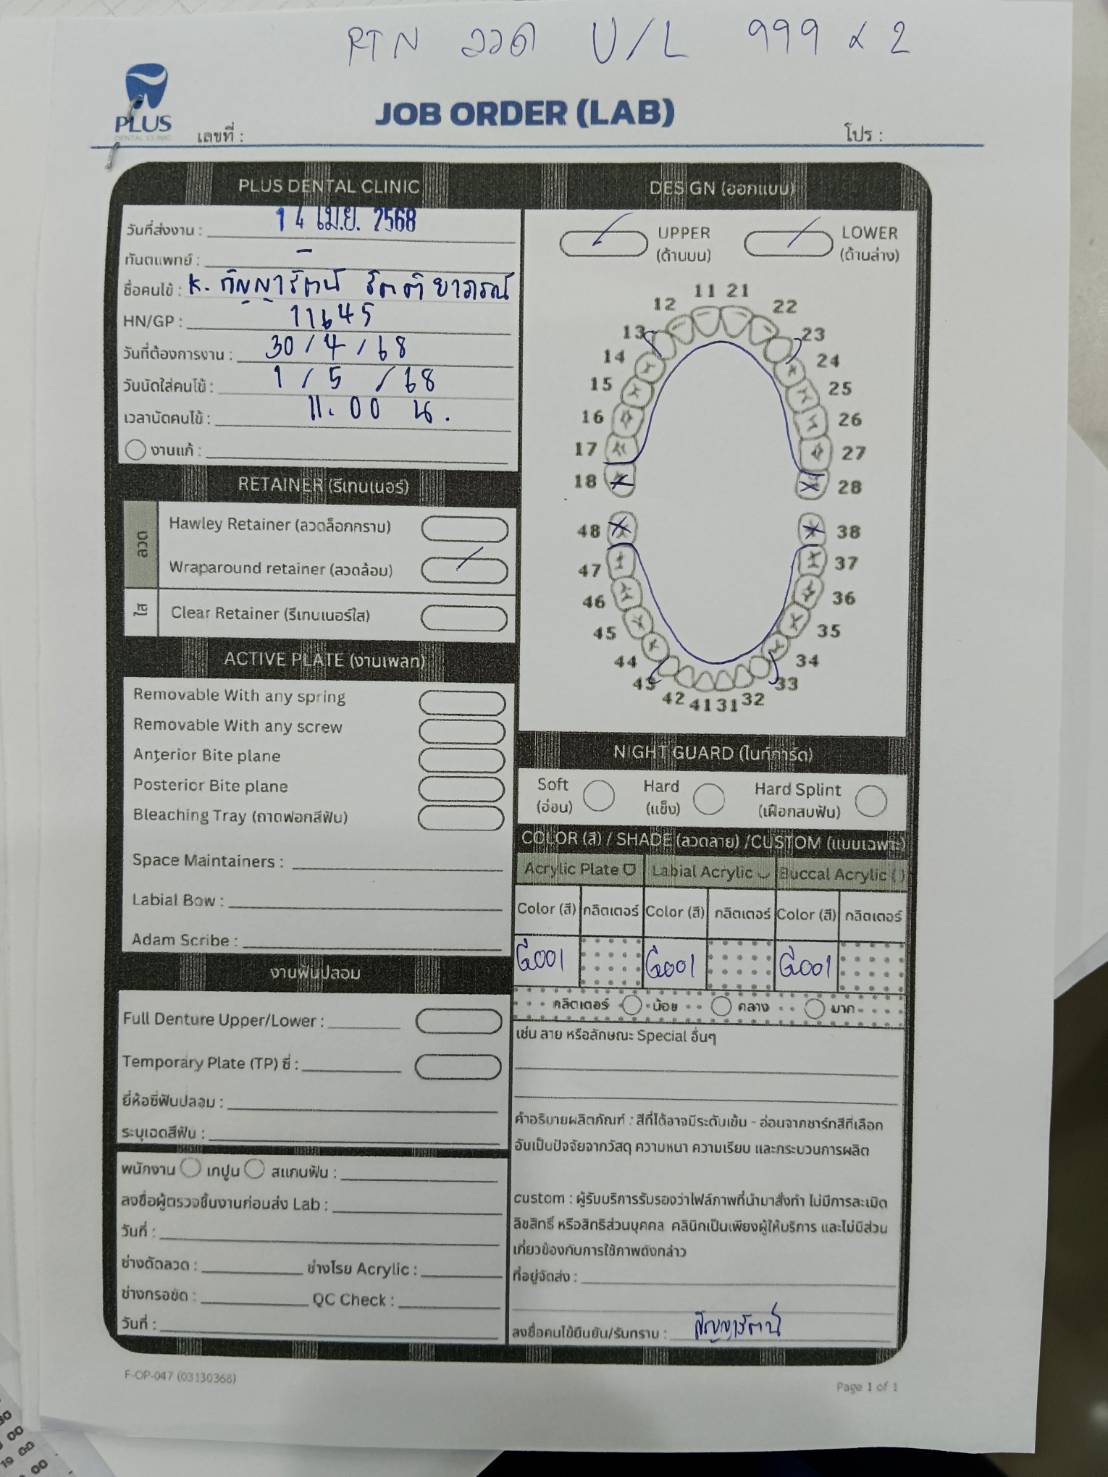 RTN ลวด U/L 999 x 2
PLUS
DENTAL CLINIC
JOB ORDER (LAB)
เลขที่ :
โปร :
PLUS DENTAL CLINIC
วันที่ส่งงาน : 14 เม.ย. 2568
ทันตแพทย์ : -
ชื่อคนไข้ : K. กัญญารัตน์
HN/GP : 11645
วันที่ต้องการงาน : 30 / 4 / 68
วันนัดใส่คนไข้ : 1 / 5 / 68
เวลานัดคนไข้ : 11.00 น.
งานแก้ :
RETAINER (รีเทนเนอร์)
ลวด
Hawley Retainer (ลวดล็อกกราม)
Wraparound retainer (ลวดล้อม)
ใส
Clear Retainer (รีเทนเนอร์ใส)
ACTIVE PLATE (งานเพลท)
Removable With any spring
Removable With any screw
Anterior Bite plane
Posterior Bite plane
Bleaching Tray (ถาดฟอกสีฟัน)
Space Maintainers :
Labial Bow :
Adam Scribe :
งานฟันปลอม
Full Denture Upper/Lower :
Temporary Plate (TP) ซี่ :
ยี่ห้อซี่ฟันปลอม :
ระบุเฉดสีฟัน :
พนักงาน เทปูน สแกนฟัน :
ลงชื่อผู้ตรวจชิ้นงานก่อนส่ง Lab :
วันที่ :
ช่างดัดลวด : ช่างโรย Acrylic :
ช่างกรอขัด : QC Check :
วันที่ :
DESIGN (ออกแบบ)
UPPER
(ด้านบน)
LOWER
(ด้านล่าง)
11 21
12 22
13 23
14 24
15 25
16 26
17 27
18 28
48 38
47 37
46 36
45 35
44 34
43 33
42 41 31 32
NIGHT GUARD (ไนท์การ์ด)
Soft
(อ่อน)
Hard
(แข็ง)
Hard Splint
(เฝือกสบฟัน)
COLOR (สี) / SHADE (ลวดลาย) /CUSTOM (แบบเฉพาะ)
Acrylic Plate Labial Acrylic Buccal Acrylic ( )
Color (สี) กลิตเตอร์ Color (สี) กลิตเตอร์ Color (สี) กลิตเตอร์
G001 G001 G001
กลิตเตอร์ น้อย กลาง มาก
เช่น ลาย หรือลักษณะ Special อื่นๆ
คำอธิบายผลิตภัณฑ์ : สีที่ได้อาจมีระดับเข้ม - อ่อนจากชาร์ทสีที่เลือก
อันเป็นปัจจัยจากวัสดุ ความหนา ความเรียบ และกระบวนการผลิต
custom : ผู้รับบริการรับรองว่าไฟล์ภาพที่นำมาสั่งทำ ไม่มีการละเมิด
ลิขสิทธิ์ หรือสิทธิส่วนบุคคล คลินิกเป็นเพียงผู้ให้บริการ และไม่มีส่วน
เกี่ยวข้องกับการใช้ภาพดังกล่าว
ที่อยู่จัดส่ง :
ลงชื่อคนไข้ยืนยัน/รับทราบ : กัญญารัตน์
F-OP-047 (03130368)
Page 1 of 1